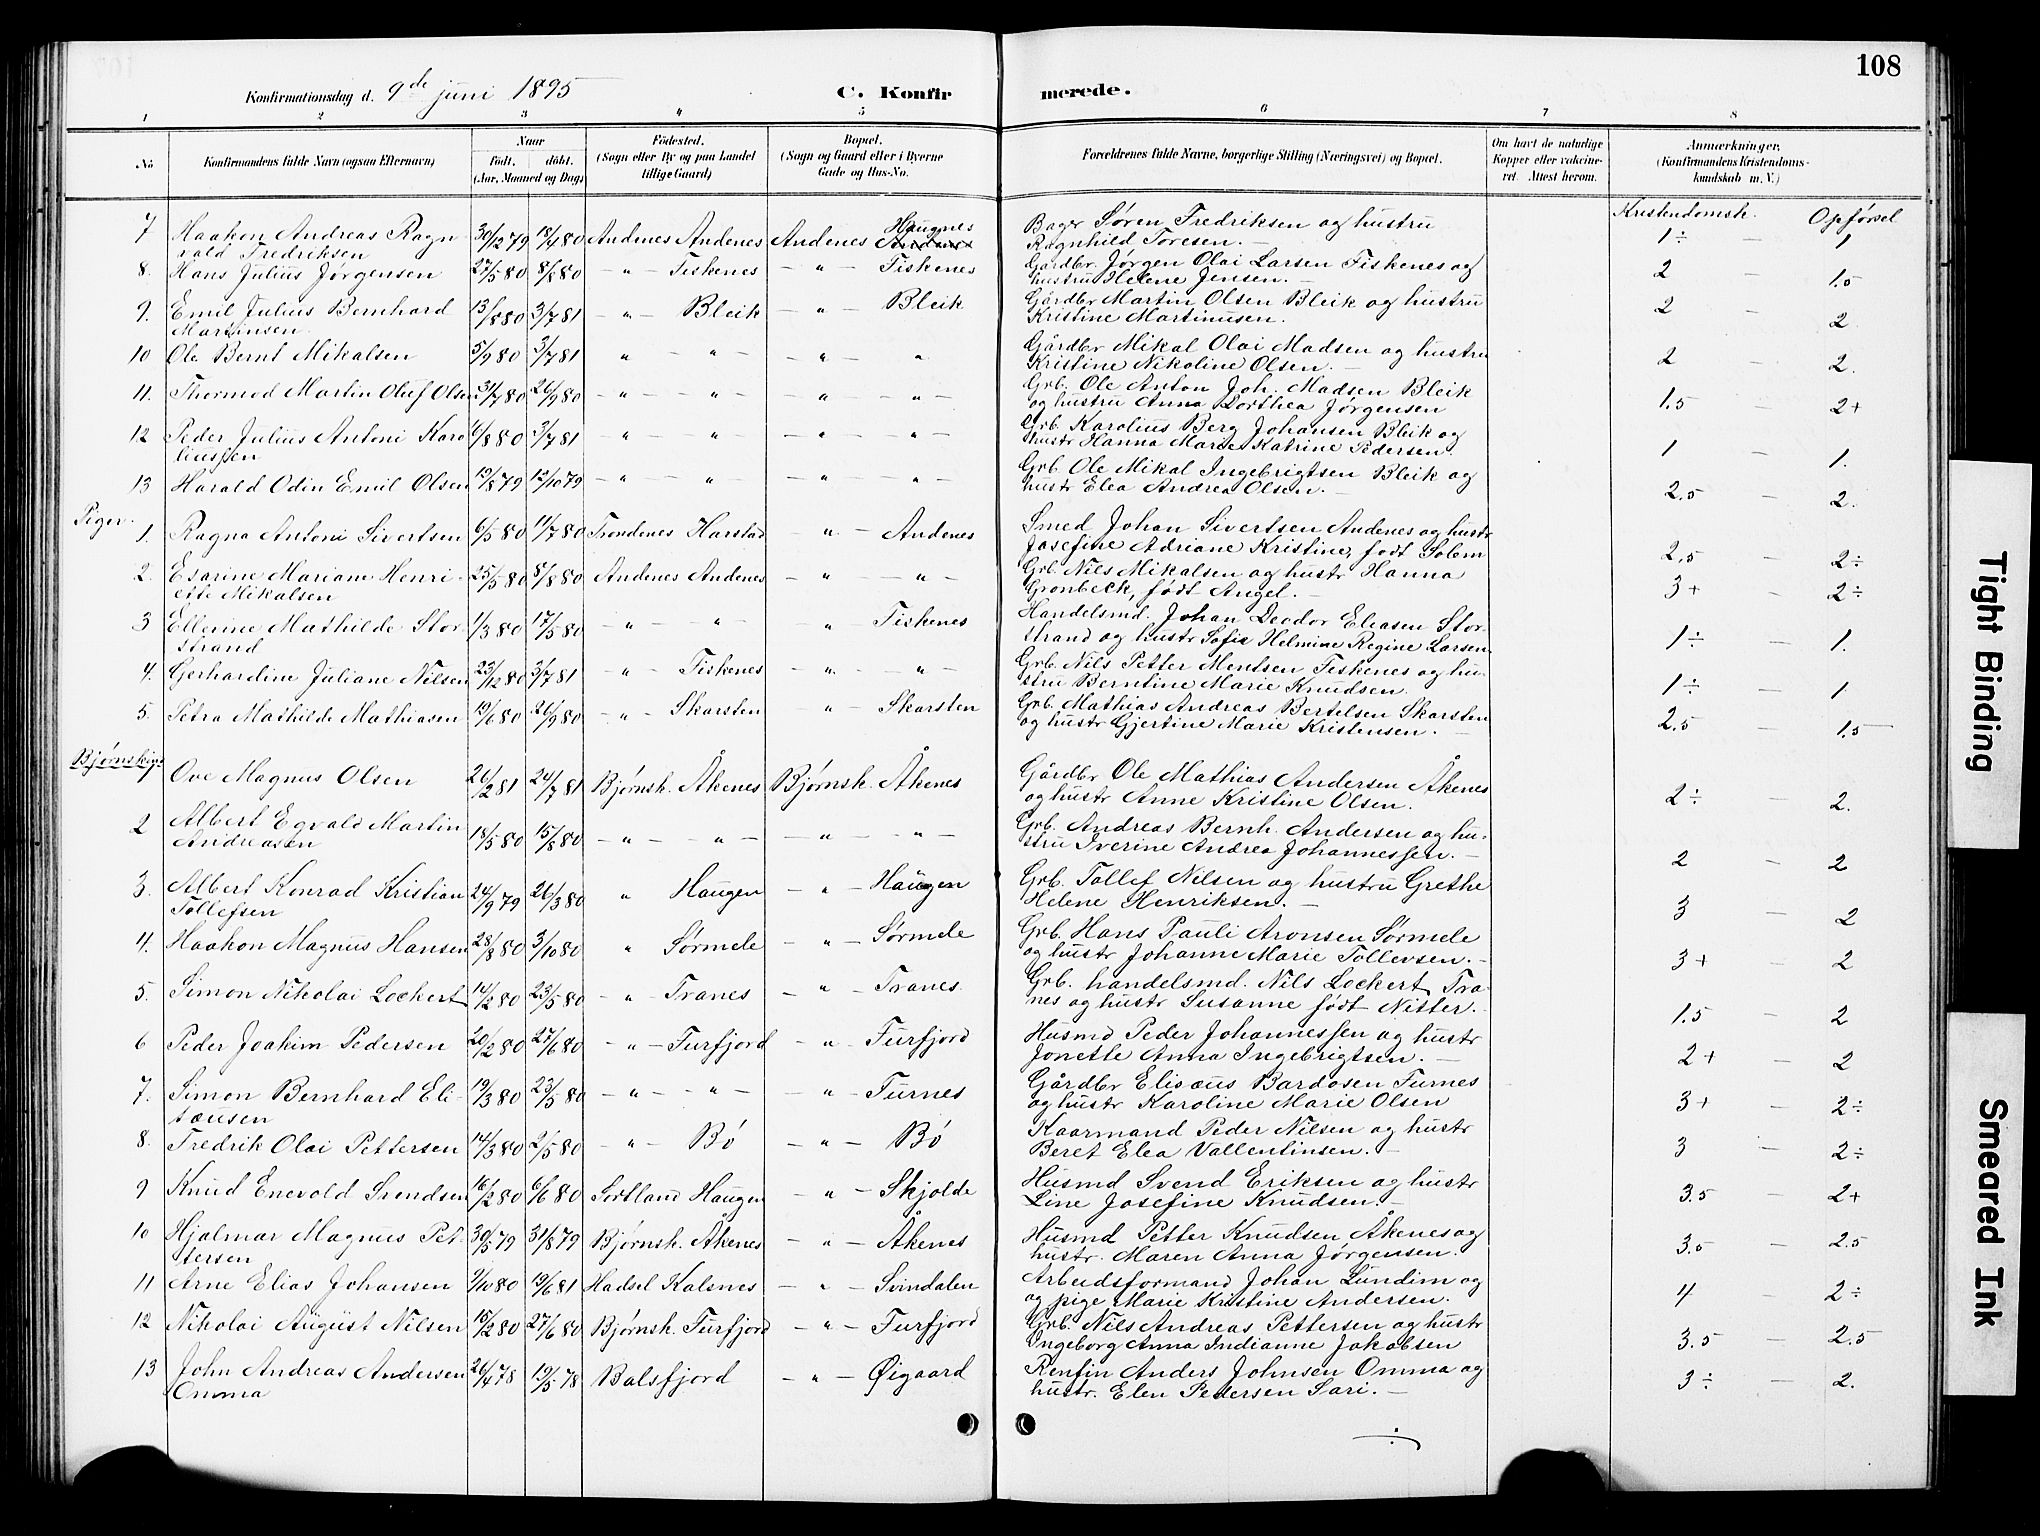 108
Konfirmationsdag d. 9de juni 1895 C. Konfirmerede.
1 2 3 4 5 6 7 8
No Konfirmandens fulde Navn (ogsaa Efternavn) Naar født. døbt. (Aar, Maaned og Dag) Fødested. (Sogn eller By og paa Landet tillige Gaard) Bopæl. (Sogn og Gaard eller i Byerne Gade og Hus-No. Forældrenes fulde Navne, borgerlige Stilling (Næringsvei) og Bopæl. Om havt de naturlige Kopper eller vakcineret. Attest herom. Anmærkninger, (Konfirmandens Kristendomskundskab m. V.)
Kristendomsk. Opførsel
7 Haakon Andreas Ragn 30/12 79 18/4 80 Andenes Andenes Andenes Haugnes Bager Søren Fredriksen og hustru 1÷ – 1
vald Fredriksen Ragnhild Toresen. –
8. Hans Julius Jørgensen 27/5 80 8/8 80 – " – Fiskenes – " – Fiskenes Gårdbr. Jørgen Olai Larsen Fiskenes og 2 1.5
hustru Helene Jensen. –
9. Emil Julius Bernhard 13/8 80 3/7 81 – " – Bleik – " – Bleik Gårdbr Martin Olsen Bleik og hustru 2 – 2
Martinsen. Kristine Martinusen.
10 Ole Bernt Mikalsen 5/9 80 3/7 81 " – " – – " – " Gårdbr Mikal Olai Madsen og hustru 2 – 2.
Kristine Nikoline Olsen. –
11. Thormod Martin Oluf Olsen 31/7 80 26/9 80 – " – – " – " – " – Grb. Ole Anton Joh. Madsen Bleik 1.5 – 2+
og hustru Anna Dorthea Jørgensen
12 Peder Julius Antoni Karo 6/8 80 3/7 81 – " – " – – " – – " – Grb. Karolius Berg Johansen Bleik og 1 – 1.
liussen hustr Hanna Marie Katrine Pedersen.
13 Harald Odin Emil Olsen 19/8 79 12/10 79 – " – " – " – " – Grb. Ole Mikal Ingebrigtsen Bleik og 2.5 – 2.
hustr Elea Andrea Olsen. –
Piger.
1. Ragna Antoni Sivertsen 6/5 80 11/7 80 Trondenes Harstad " – Andenes Smed Johan Sivertsen Andenes og hustr 2.5 – 2÷
Josefine Adriane Kristine, født Solem
2. Esarine Mariane Henri- 25/5 80 8/8 80 Andenes Andenes – " – " – Grb. Nils Mikalsen og hustr Hanna 3+ – 2÷
ette Mikalsen Grønbeck, født Angel. –
3 Ellerine Mathilde Stor- 1/3 80 17/5 80 – " – " – " Fiskenes Handelsmd. Johan Deodor Eleasen Stor- 1÷ – 1.
strand strand og hustr Sofie Helmine Regine Larsen
4. Gerhardine Juliane Nilsen 23/12 80 3/7 81 – " – Fiskenes – " – " – Grb. Nils Petter Mentsen Fiskenes og hu- 1÷ – 1
stru Berntine Marie Knudsen.
5. Petra Mathilde Mathiasen 19/6 80 26/9 80 – " – Skarsten – " – Skarsten Grb. Mathias Andreas Bertelsen Skarsten 2.5 – 1.5
og hustr Gjertine Marie Kristensen. –
Bjørnskin
1. Ove Magnus Olsen 26/2 81 24/7 81 Bjørnsk. Åkenes Bjørnsk. Åkenes Gårdbr Ole Mathias Andersen Åkenes 2÷ – 2.
og hustr Anne Kristine Olsen.
2 Albert Egvald Martin 18/5 80 15/8 80 – " – – " – – " – – " – Grb. Andreas Bernh. Andersen og hu- 2 – 2
Andreasen stru Iverine Andrea Johannessen. –
3. Albert Konrad Kristian 24/9 79 26/3 80 " Haugen – " – Haugen Grb. Tollef Nilsen og hustru Grethe 3 – 2
Tollefsen Helene Henriksen. –
4. Haakon Magnus Hansen 28/8 80 3/10 80 " Sørmele – " – Sørmele Grb. Hans Pauli Aronsen Sørmele 3+ – 2
og hustr Johanne Marie Tollevsen. –
5. Simon Nikolai Lockert 14/2 80 23/5 80 – " – Tranes – " – Tranes Grb. handelsmd. Nils Lockert, Tra- 1.5 – 2
nes og hustr Susanne født Nitter. –
6 Peder Joakim Pedersen 20/2 80 27/6 80 – " – Furfjord – " – Furfjord Husmd Peder Johannessen og hustr 2+ – 2
Jonette Anna Ingebrigtsen. –
7. Simon Bernhard Eli- 19/3 80 23/5 80 – " – " – – " – Furnes Gårdbr Elisæus Bardosen Furnes 3+ – 2÷
sæusen og hustr Karoline Marie Olsen
8. Fredrik Olai Pettersen 14/3 80 2/5 80 – " – Bø – " – Bø Kaarmand Peder Nilsen og hustr 3 – 2÷
Beret Elea Vallentinsen. –
9 Knud Enevold Svendsen 16/2 80 6/6 80 Sortland Haugen – " – Skjolde Husmd Svend Eriksen og hustr 3.5 – 2+
Line Josefine Knudsen. –
10 Hjalmar Magnus Pet- 30/5 79 31/8 79 Bjørnsk. Åkenes – " – Åkenes Husmd Petter Knudsen Åkenes og 3.5 – 2.5
tersen hustr. Maren Anna Jørgensen.
11 Arne Elias Johansen 9/10 80 19/6 81 Hadsel Kalsnes – " – Svindalen Arbeidsformand Johan Lundim og 4 – 2÷
og pige Marie Kristine Andersen.
12 Nikolai August Nilsen 15/2 80 27/6 80 Bjørnsk. Furfjord – " – Furfjord Grb. Nils Andreas Pettersen og hustr 3.5 – 2.5
Ingeborg Anna Indianne Jakobsen
13 John Andreas Andersen 26/4 78 19/5 78 Balsfjord – " – Øigaard Renfin Anders Johnsen Omma og 3÷ – 2.
Omma hustr. Elen Pedersen Sari. –
Tight Binding
Smeared Ink